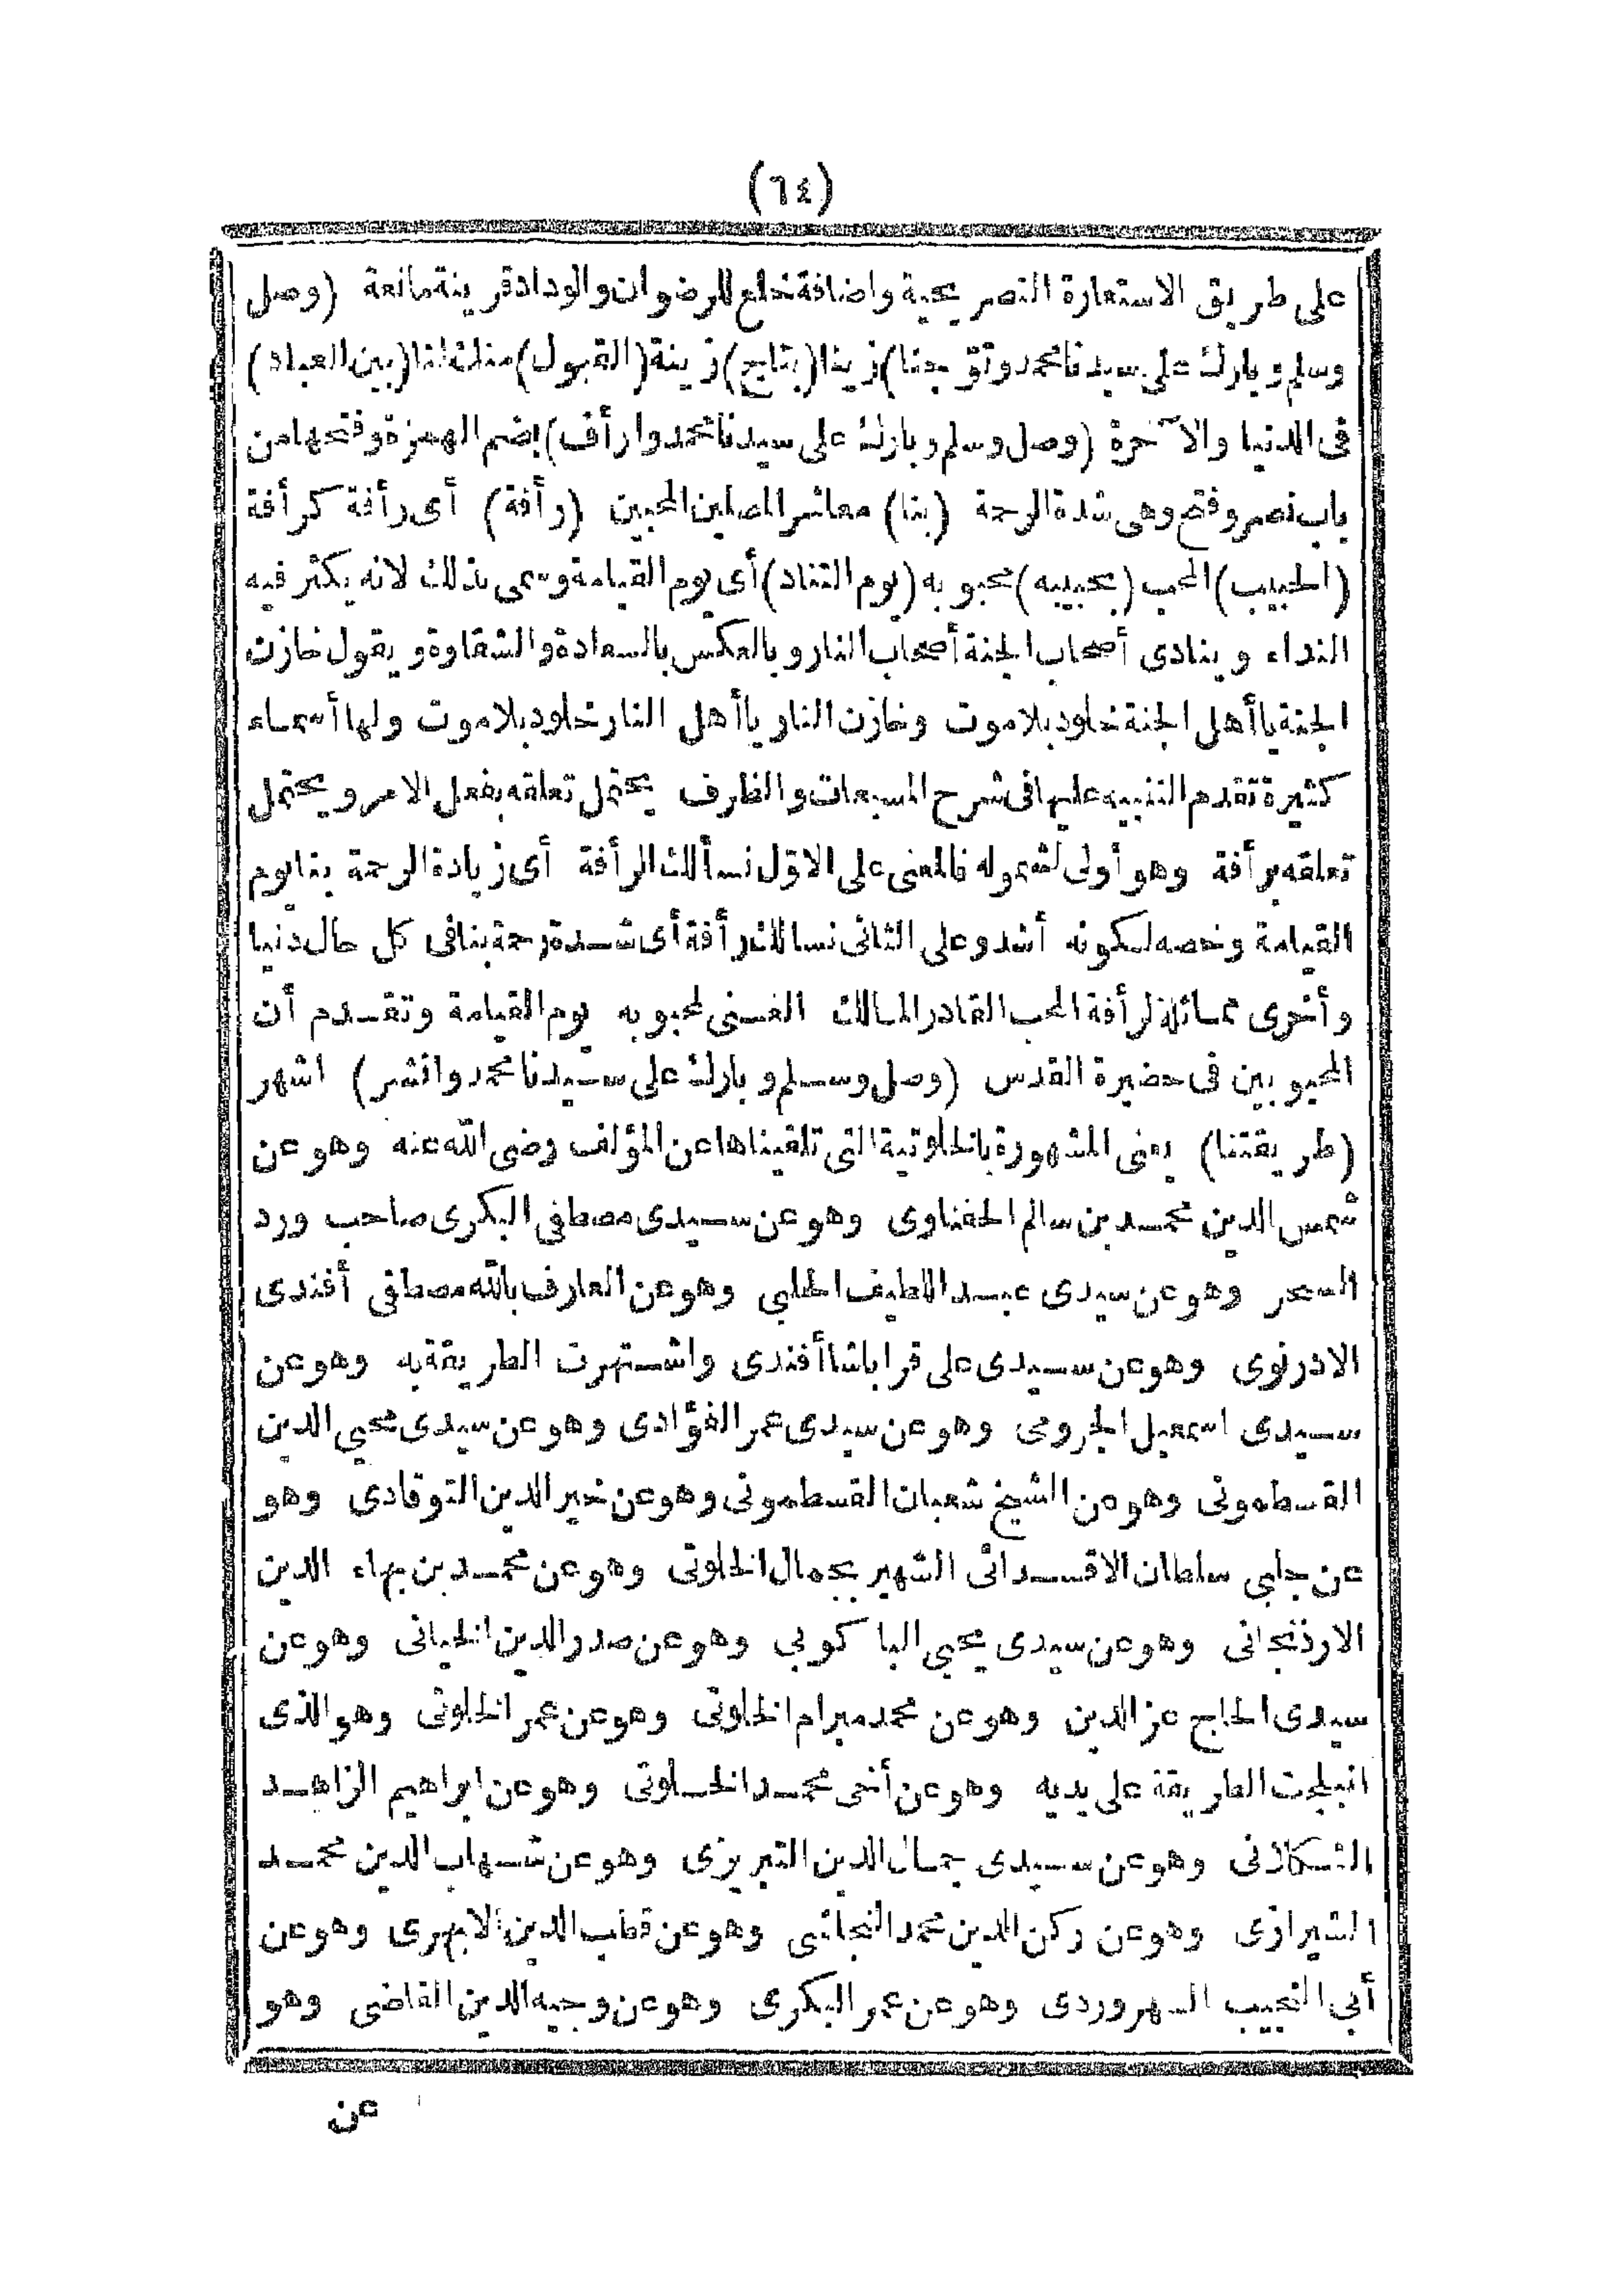 (٦٤)
على طريق الاستعارة التصريحية واضافة خلع للرضوان والوداد قرينة مانعة (وصل
وسلم وبارك على سيدنا محمد وتوّجنا) زينا (بتاج) زينة (القبول) منك لنا (بين العباد)
فى الدنيا والآخرة (وصل وسلم وبارك على سيدنا محمد وارأف) بضم الهمزة وفتحها من
باب نصر وفتح وهى شدة الرحمة (بنا) معاشر المصلين المحبين (رأفة) أى رأفة كرأفة
(الحبيب) المحب (بحبيبه) محبوبه (يوم التناد) أى يوم القيامة وسمى بذلك لانه يكثر فيه
النداء وينادى أصحاب الجنة أصحاب النار وبالعكس بالسعادة والشقاوة ويقول خازن
الجنة يا أهل الجنة خلود بلا موت وخازن النار يا أهل النار خلود بلا موت ولها أسماء
كثيرة تقدم التنبيه عليها فى شرح المسبعات والظرف يحتمل تعلقه بفعل الامر ويحتمل
تعلقه برأفة وهو أولى لشموله فالمعنى على الاوّل نسألك الرأفة أى زيادة الرحمة بنا يوم
القيامة وخصه لكونه أشد وعلى الثانى نسالك رأفة أى شدة رحمة بنا فى كل حال دنيا
وأخرى مماثلة لرأفة المحب القادر المالك الغنى لمحبوبه يوم القيامة وتقدم أن
المحبوبين فى حضيرة القدس (وصل وسلم وبارك على سيدنا محمد وانشر) اشهر
(طريقتنا) يعنى المشهورة بالخلوتية التى تلقيناها عن المؤلف رضى الله عنه وهو عن
شمس الدين محمد بن سالم الحفناوى وهو عن سيدى مصطفى البكرى صاحب ورد
السحر وهو عن سيدى عبد اللطيف الحلبى وهو عن العارف بالله مصطفى أفندى
الادرنوى وهو عن سيدى على قراباشا أفندى واشتهرت الطريقة به وهو عن
سيدى اسمعيل الجرومى وهو عن سيدى عمر الفؤادى وهو عن سيدى محيي الدين
القسطمونى وهو عن الشيخ شعبان القسطمونى وهو عن خير الدين التوقادى وهو
عن جلبي سلطان الاقسدائى الشهير بجمال الخلوتى وهو عن محمد بن بهاء الدين
الارذنجانى وهو عن سيدى يحيي الباكوبي وهو عن صدر الدين الخيانى وهو عن
سيدى الحاج عز الدين وهو عن محمد ميرام الخلوتى وهو عن عمر الخلوتى وهو الذى
انبلجت الطريقة على يديه وهو عن أخى محمد الخلوتى وهو عن ابراهيم الزاهد
التكلانى وهو عن سيدى جمال الدين التبريزى وهو عن شهاب الدين محمد
الشيرازى وهو عن ركن الدين محمد النجاشى وهو عن قطب الدين الابهرى وهو عن
أبي النجيب السهروردى وهو عن عمر البكرى وهو عن وجيه الدين القاضى وهو
عن